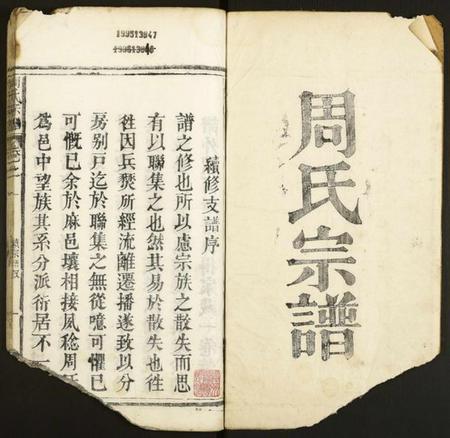 周氏宗譜
199513847
199513848
續修支譜序
譜之修也所以慮宗族之散失而思
有以聯集之也然其易於散失也徃
徃因兵燹所經流離遷播遂致以分
房别戸迄於聯集之無從噫可懼已
可慨已余於麻邑壤相接夙稔周
爲邑中望族其系分派衍居不一